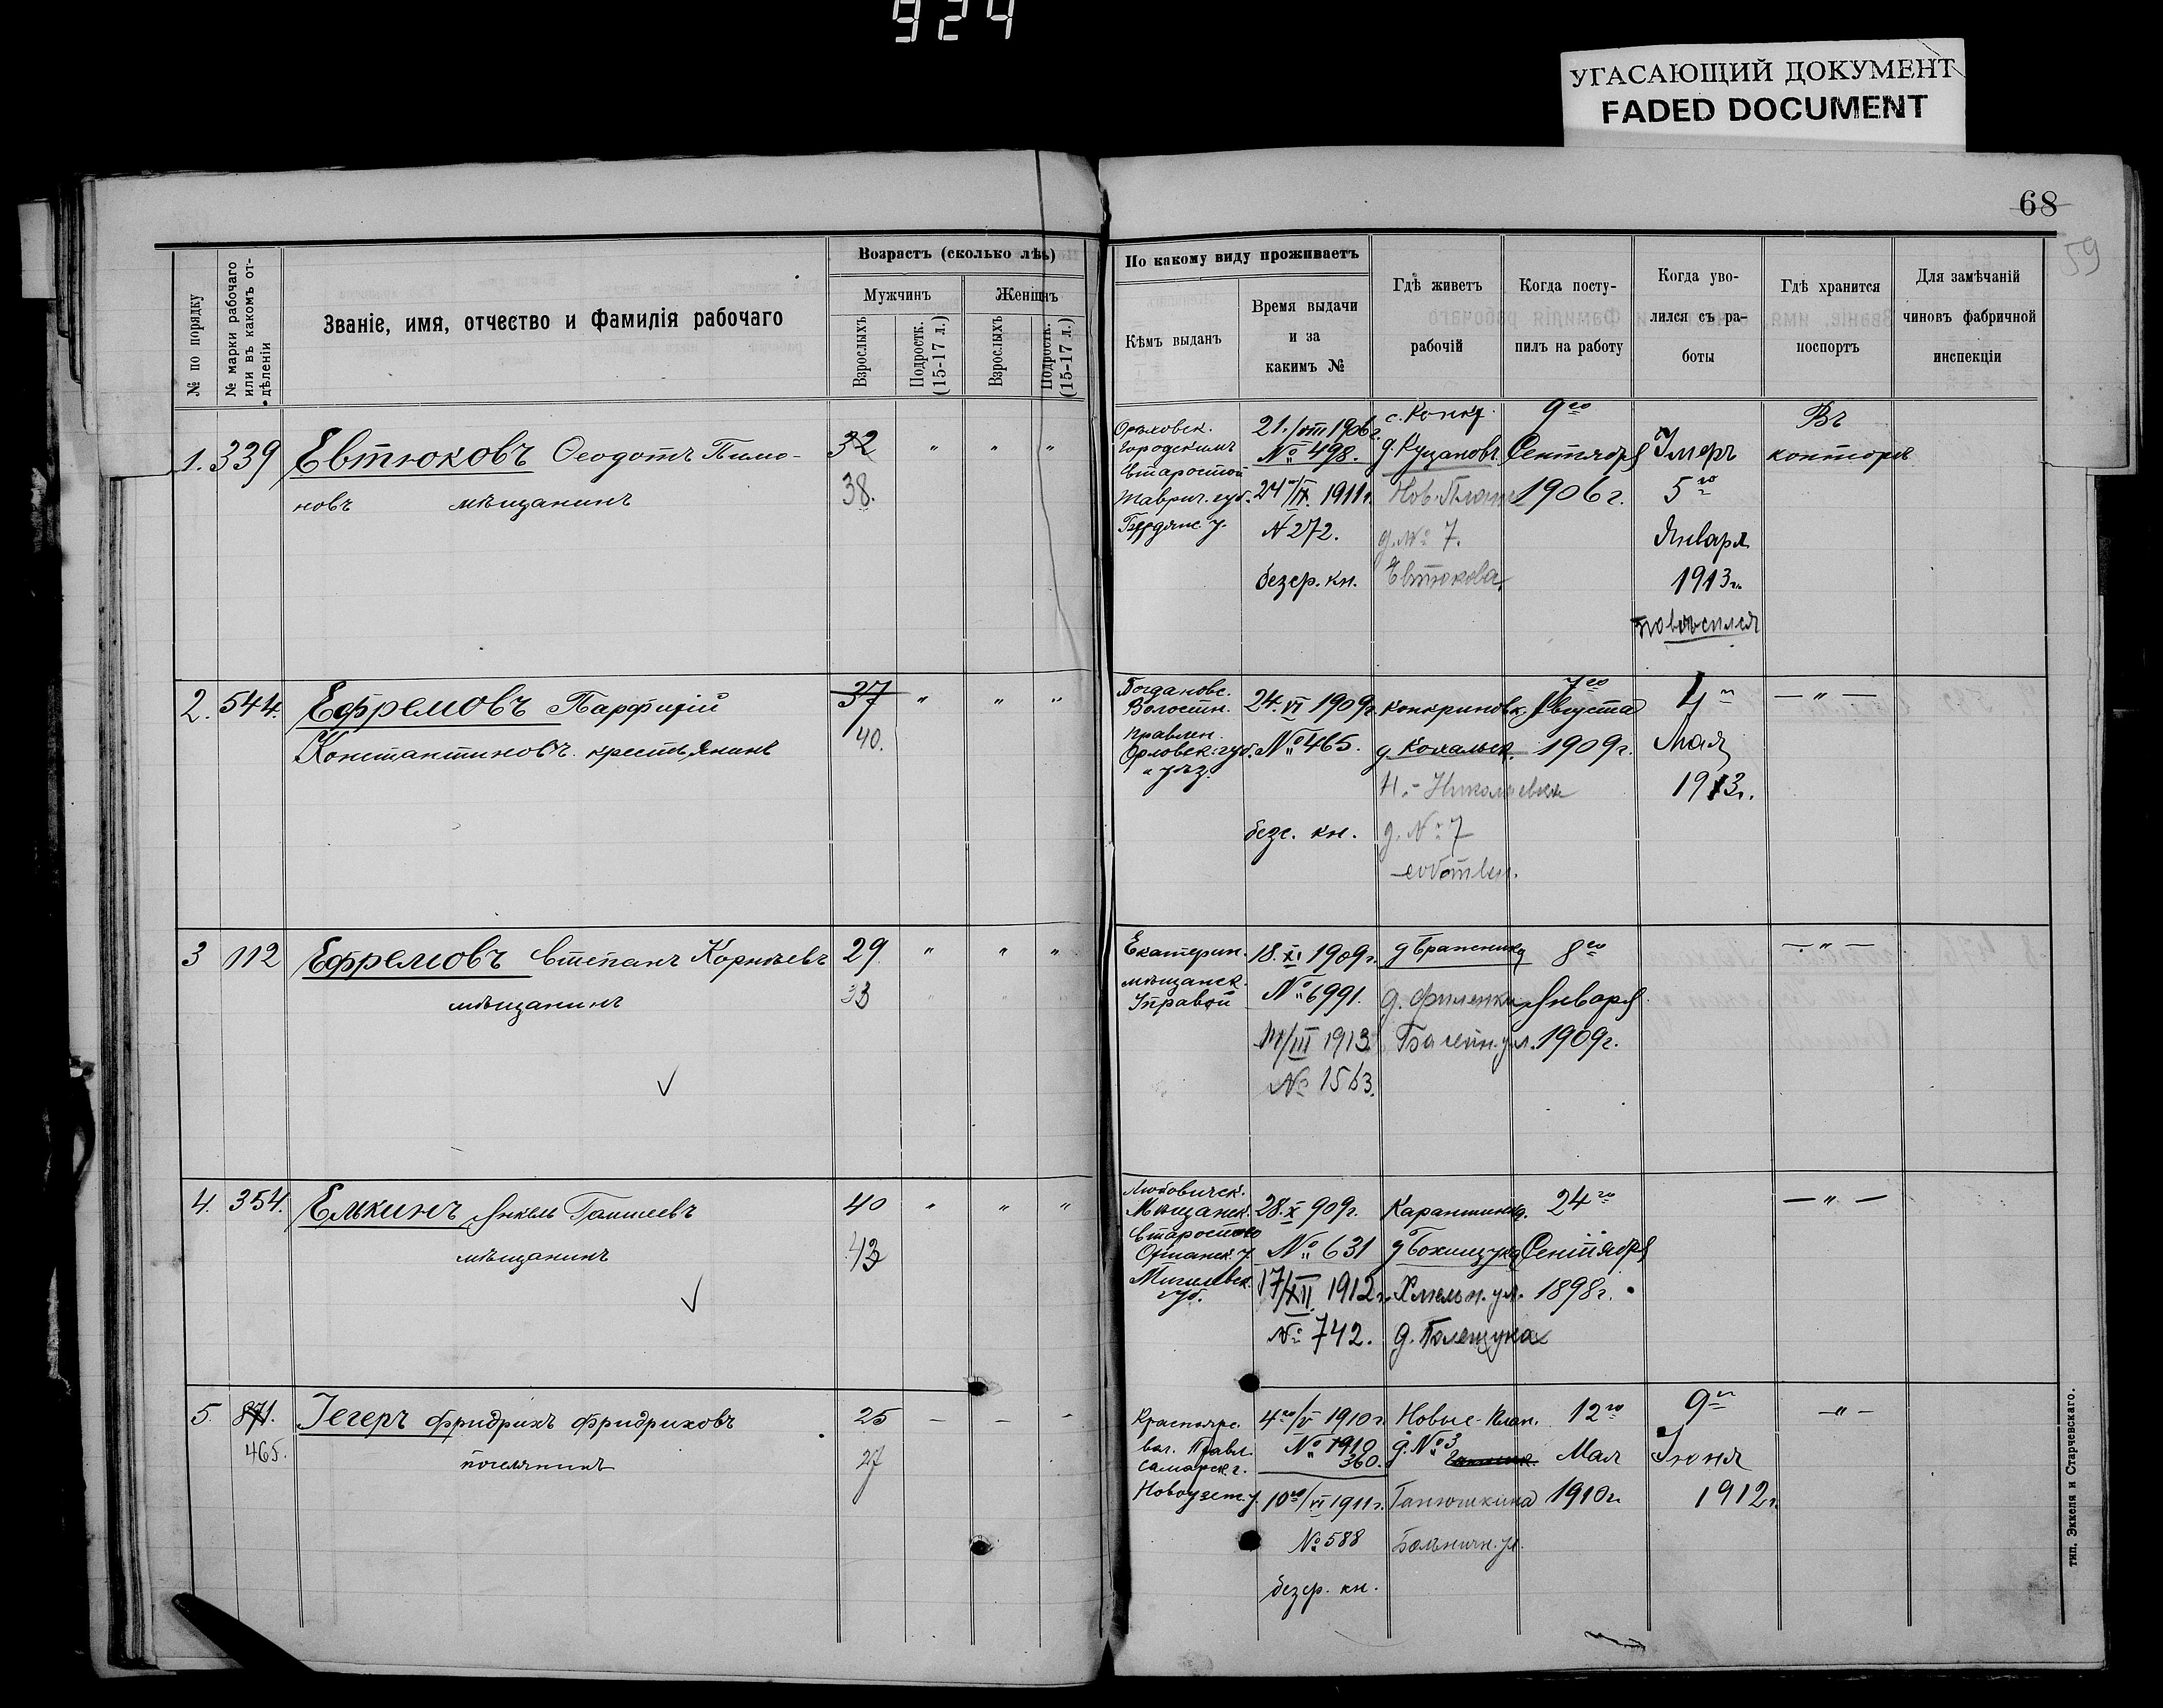 924
УГАСАЮЩИЙ ДОКУМЕНТ
FADED DOCUMENT
68
59
№ по порядку
№ марки рабочаго или въ какомъ отдѣленіи
Званіе, имя, отчество и фамилія рабочаго
Возрастъ (сколько лѣтъ)
Мужчинъ
Женщинъ
Взрослыхъ
Подростк. (15-17 л.)
Взрослыхъ
Подростк. (15-17 л.)
По какому виду проживаетъ
Кѣмъ выданъ
Время выдачи
и за
какимъ №
Гдѣ живетъ
рабочій
Когда посту-
пилъ на работу
Когда уво-
лился съ ра-
боты
Гдѣ хранится
поспортъ
Для замѣчаній
чиновъ фабричной
инспекціи
1. 339 Евтюковъ Ѳеодотъ Пимо- 32 " " "
новъ мѣщанинъ 38.
Орѣховск.
городскимъ
Старостой
Таврич. губ.
Бердянс. у.
21./VIII 1906 г.
№ 498.
24/IX 1911 г.
N 272.
безср. кн.
д. Куцановъ
Нов. План
д. № 7.
Евтюкова
9го
Сентября
1906 г.
Умеръ
5го
Января
1913 г.
повѣсился
Въ
конторѣ
2. 544. Ефремовъ Парфирій 37 " " "
Константиновъ крестьянинъ 40.
Богдановс.
Волостн.
правлен.
Орловск. губ.
и уѣз.
24. VI 1909 г.
№ 465.
безс. кн.
Н.-Николаевка
д. № 7
собствен.
7го
Августа
1909 г.
4го
Мая
1913 г.
— " —
3 112 Ефремовъ Степанъ Корнѣевъ 29 " " "
мѣщанинъ 33
Екатерин.
мѣщанск.
Управой
18. XI 1909 г.
№ 6991.
/III 1913
№ 1563.
д Бражника
д. Филенки
Басейн. ул.
8го
Января
1909 г.
— " —
4. 354. Елькинъ Янкель 40 " " "
мѣщанинъ 43
Любовичск.
Мѣщанск.
Старостою
Оршанск. у.
Могилевск.
губ.
28. X 909 г.
№ 631
17/XII 1912 г.
№ 742.
Карантинн.
Хмельн. ул.
д. Полещука
24го
Сентября
1898 г.
— " —
5. 871. Іегеръ Фридрихъ Фридриховъ 25 — — —
465. поселянинъ 27
Краснояр.
вол. Правл.
Самарск. г.
Новоузенс. у.
4го/V 1910 г.
№ 1910
360.
10го/VI 1911 г.
№ 588
безср. кн.
Новые-План.
д. № 3
Ганюшкина
Больничн. ул.
12го
Мая
1910 г.
9го
Іюня
1912 г.
— " —
тип. Эккеля и Старчевскаго.